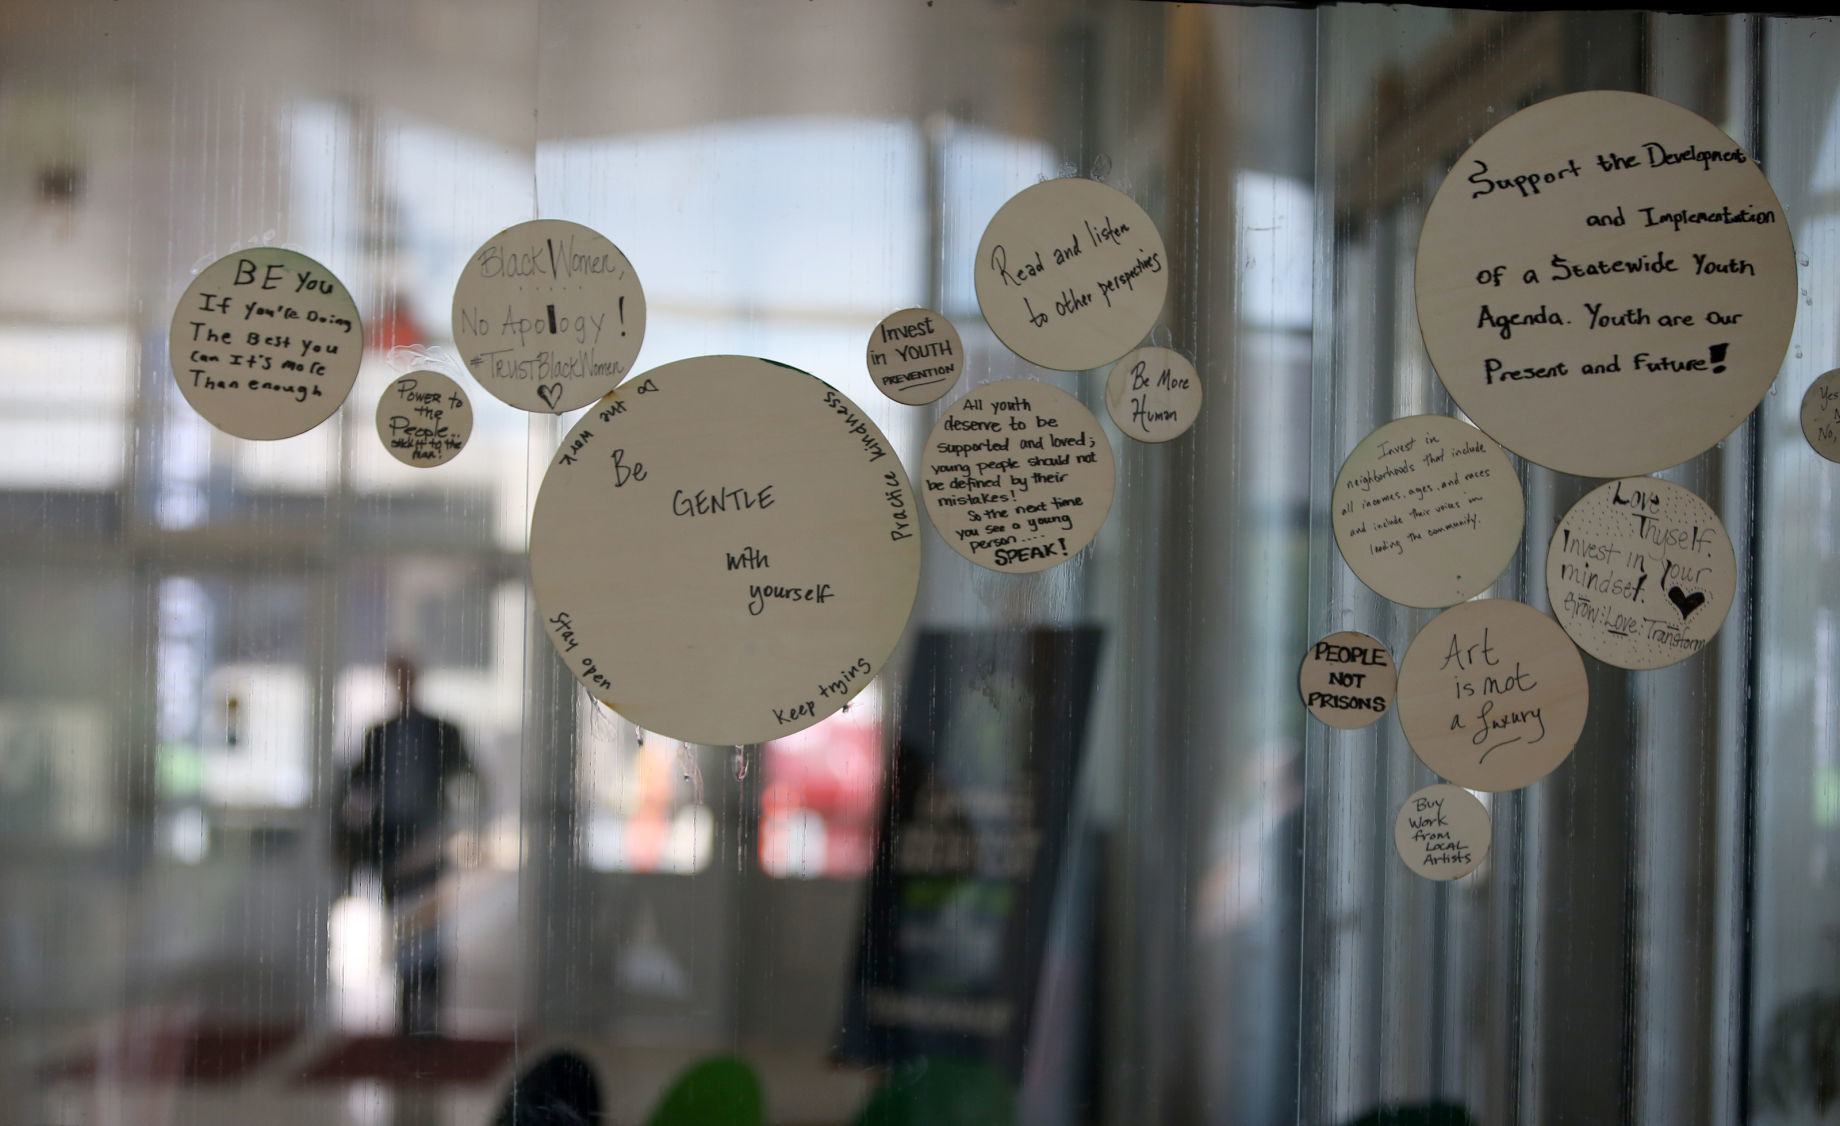 BE You
If you're Doing
The Best you
can It's more
Than enough
Power to
the
People...
stick it to the
man!
Black Women,
No Apology!
#TrustBlackWomen
Do the work
Practice kindness
Be
GENTLE
with
yourself
Stay open
keep trying
Invest
in YOUTH
PREVENTION
Read and listen
to other perspectives
Be More
Human
All youth
deserve to be
supported and loved;
young people should not
be defined by their
mistakes!
So the next time
you see a young
person....
SPEAK!
Support the Development
and Implementation
of a Statewide Youth
Agenda. Youth are our
Present and Future!
Invest in
neighborhoods that include
all incomes, ages, and races
and include their voices in
leading the community.
Love
Thyself.
Invest in Your
mindset.
Grow:Love:Transform
PEOPLE
NOT
PRISONS
Art
is not
a luxury
Buy
Work
from
LOCAL
Artists
Yes
No,